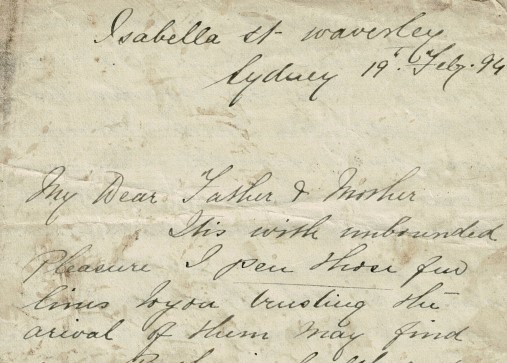 Isabella st waverley
Sydney 19th Feby. 94
My Dear Father & Mother
Itis with unbounded
Pleasure I pen those few
lines toyou trusting the
arival of them may find